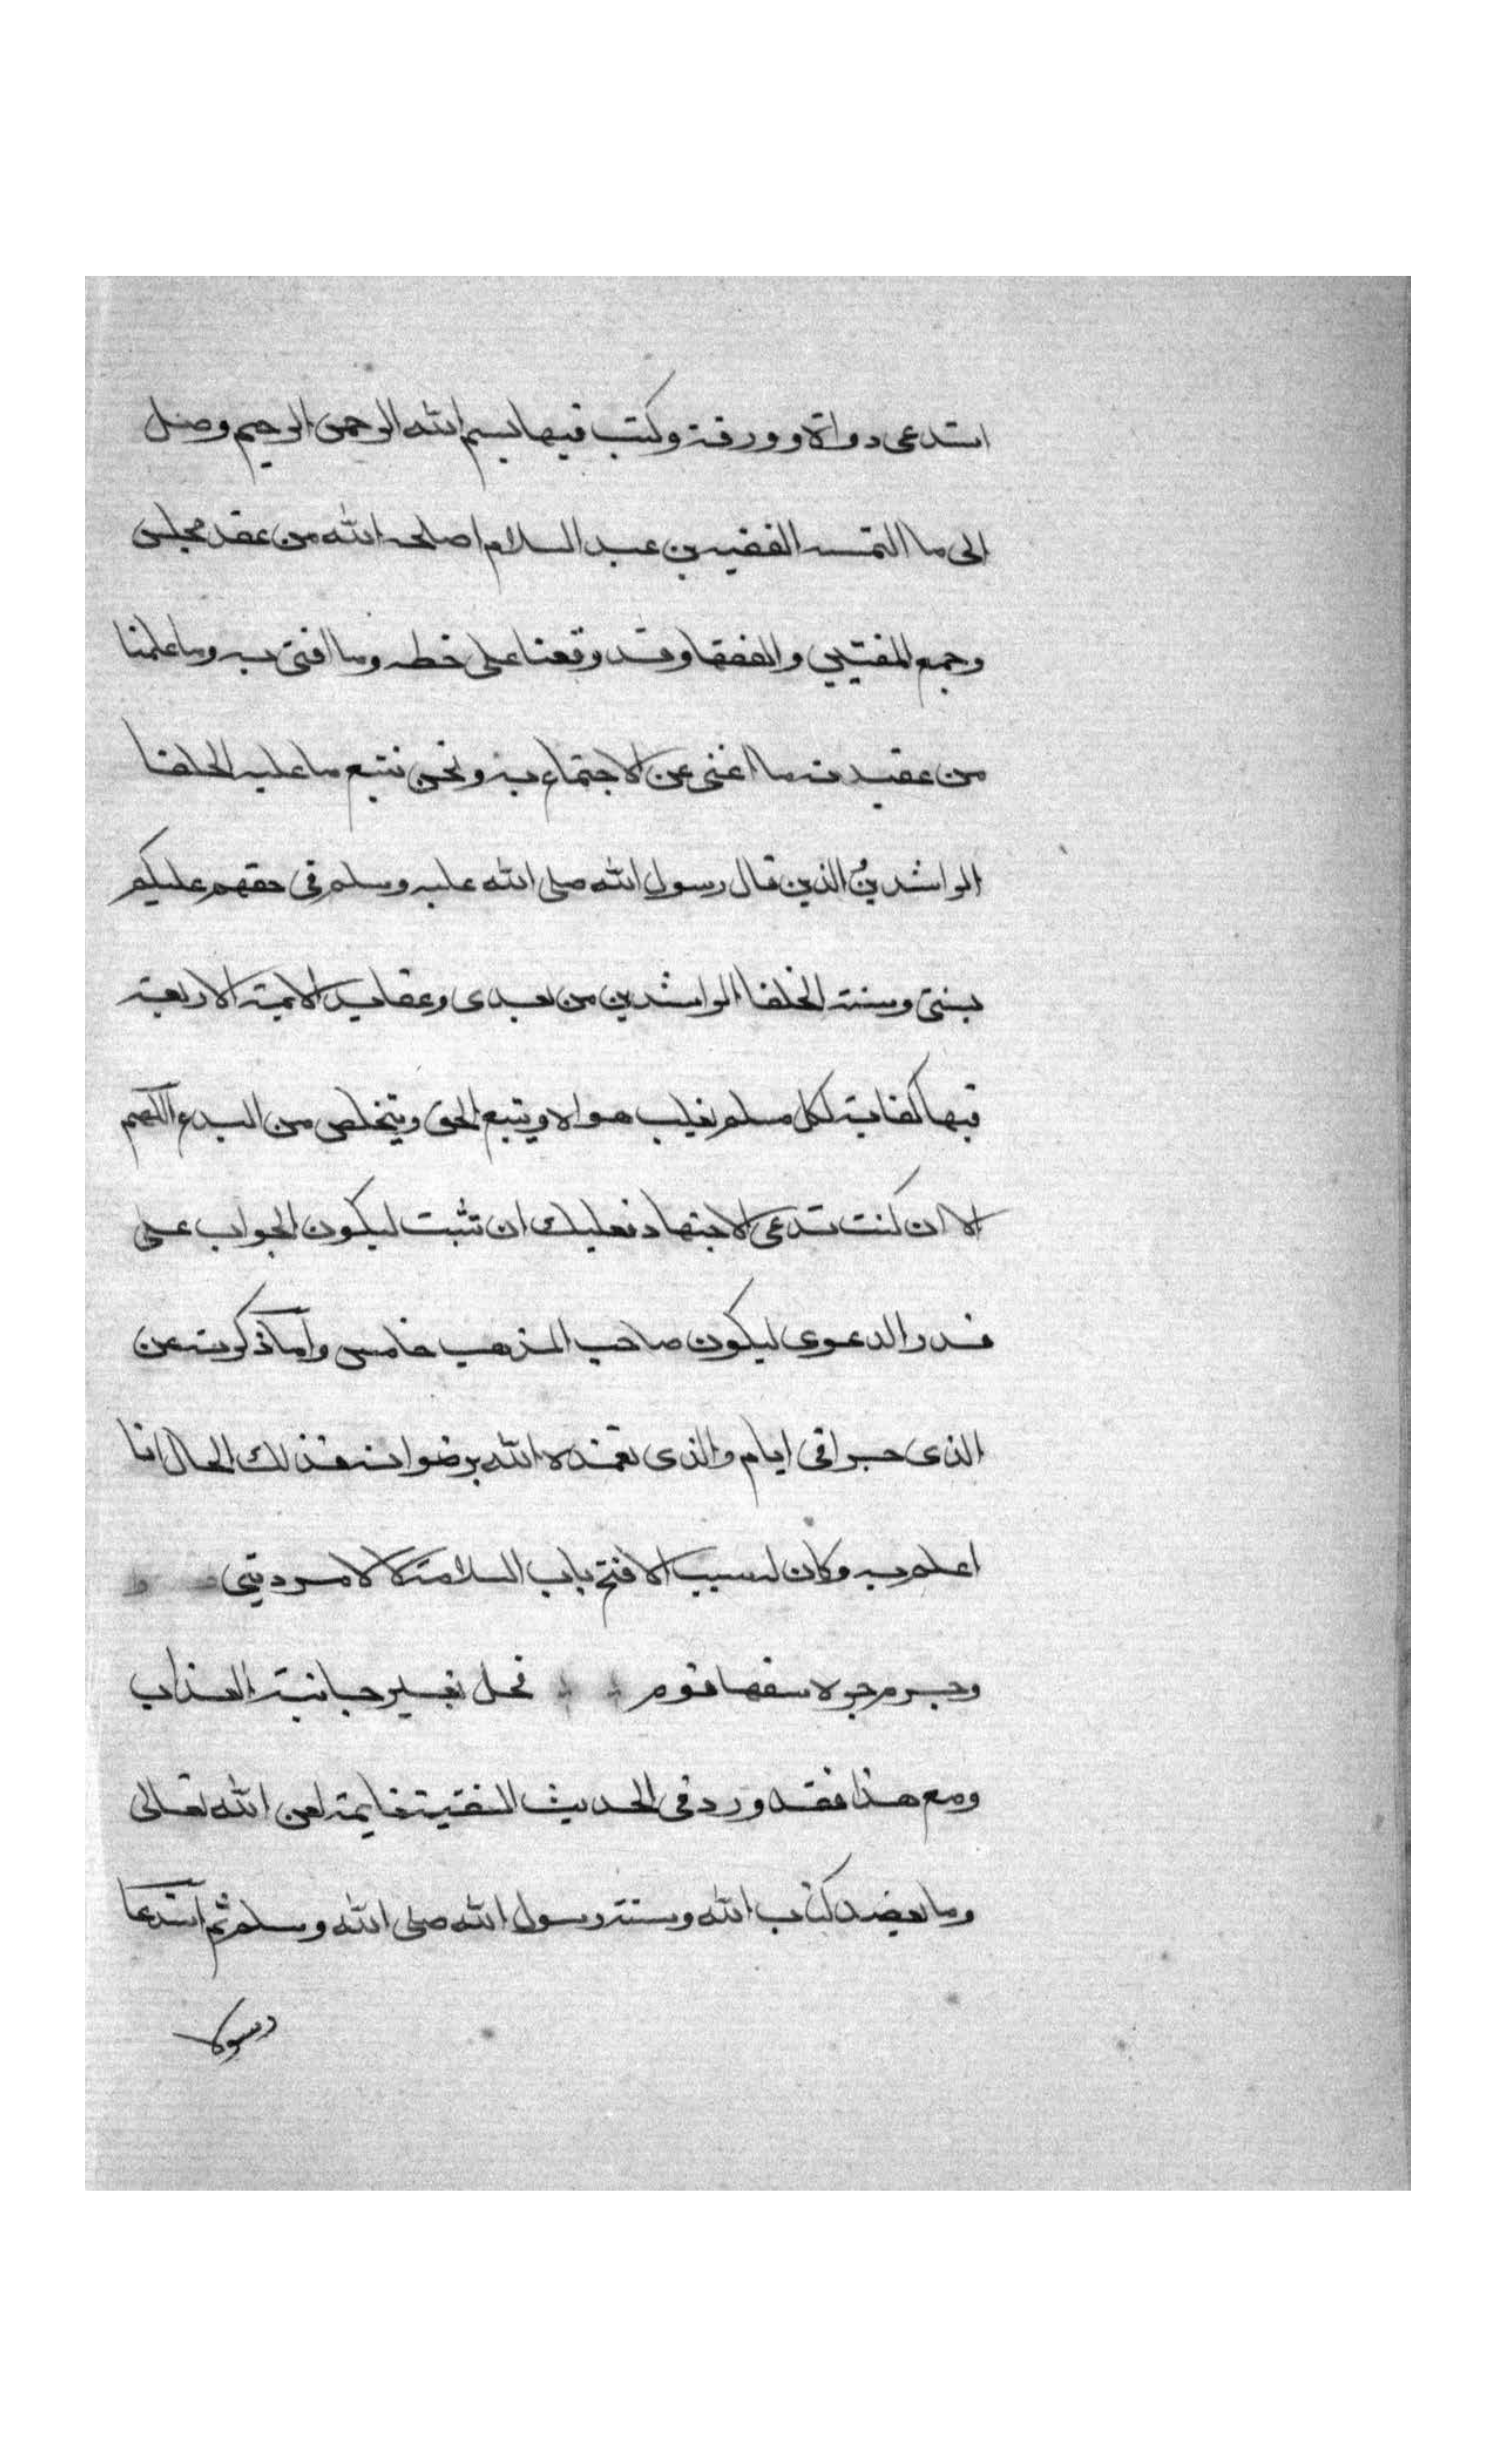 استدعى دواة وورقة وكتب فيها بسم الله الرحمن الرحيم وصل
الى ما التمسه الفقيه بن عبد السلام اصلحه الله من عقد مجلس
وجمع المفتيين والفقها وقد وقعنا على خطه وما افتى به وما علمنا
من عقيدته ما اغنى عن الاجتماع به ونحن نتبع ما عليه الخلفا
الراشدين الذين قال رسول الله صلى الله عليه وسلم فى حقهم عليكم
بسنتى وسنة الخلفا الراشدين من بعدى وعقايد الايمة الاربعة
فيها كفاية لكل مسلم يغلب هواه ويتبع الحق ويتخلص من البدع اللهم
الا ان كنت تدعى الاجتهاد فعليك ان تثبت ليكون الجواب على
قدر الدعوى ليكون صاحب المذهب خامس واما ذكرته عن
الذى جرا فى ايام والذى تغمده الله برضوانه فذلك الحال انا
اعلم به وكان له سبب الا فتح باب السلامة لا لامر دينى
وجرم جره سفها قوم فحل بغير جانبه العذاب
ومع هذا فقد ورد فى الحديث الفتنة نايمة لعن الله تعالى
وما يعضد كتاب الله وسنة رسول الله صلى الله وسلم ثم استدعا
رسولا